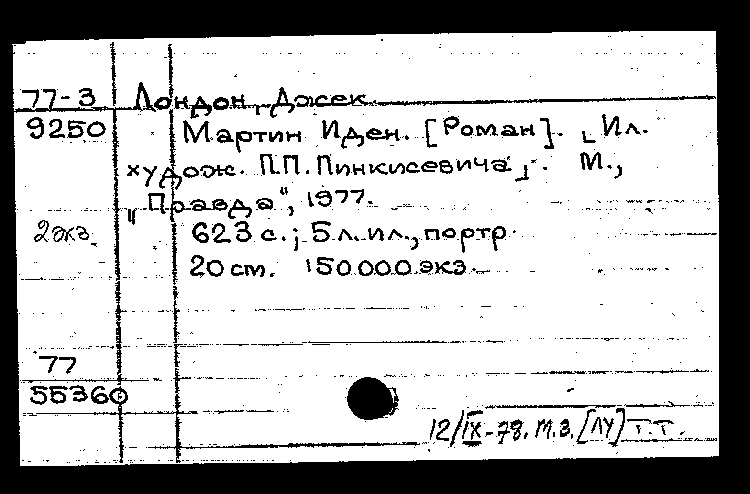 77-3 Лондон, Джек
9250 Мартин Иден. [Роман]. Ил.
худож. П.П. Пинкисевича. М.,
"Правда", 1977.
2 экз. 623 с.; 5 л. ил., портр.
20 см. 150000 экз.
77
55360
12/IX-78. М.З. [ЛУ] Т.Т.